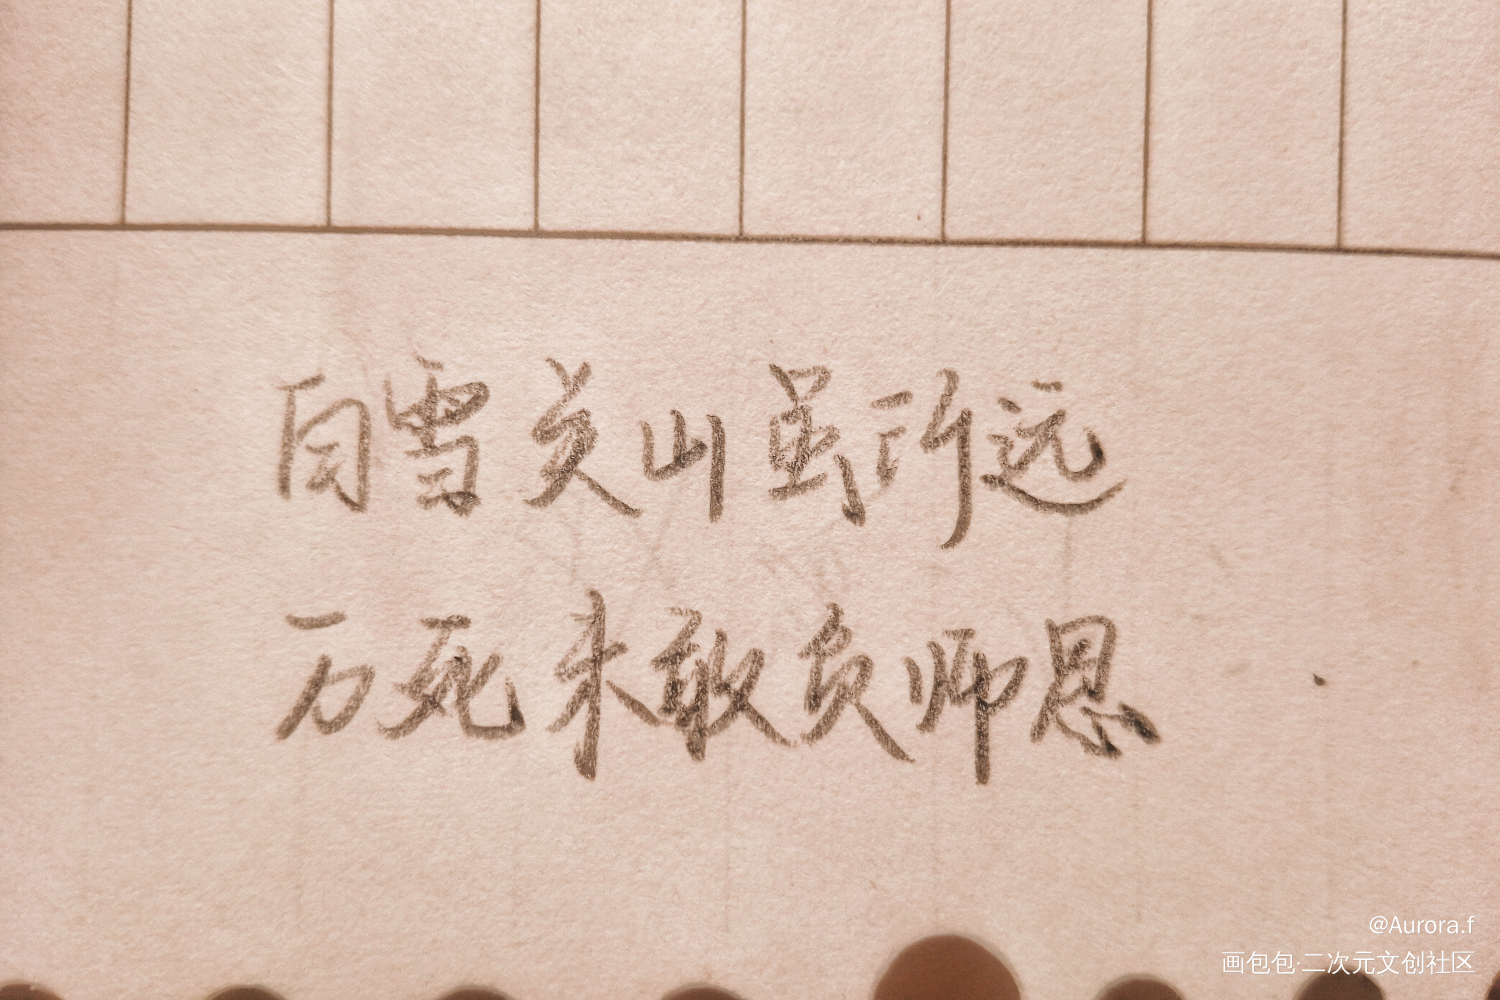 白雪关山虽所远
万死未敢负师恩
@Aurora.f
画包包·二次元文创社区